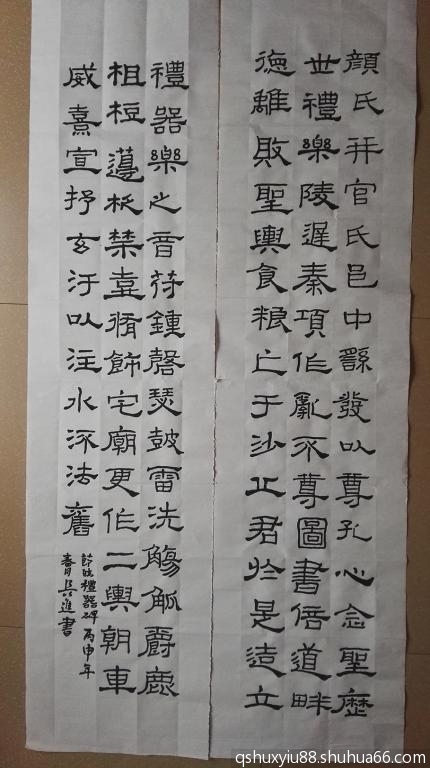 顏氏并官氏邑中繇發以尊孔心念聖歷
世禮樂陵遲秦項作亂不尊圖書倍道畔
德離敗聖輿食粮亡于沙丘君於是造立
禮器樂之音符鍾磬瑟鼓雷洗觴觚爵鹿
柤梪籩柉禁壺脩飾宅廟更作二輿朝車
威熹宣抒玄汙以注水流法舊
節臨禮器碑 丙申年
春月吳進書
qshuxyiu88.shuhua66.com